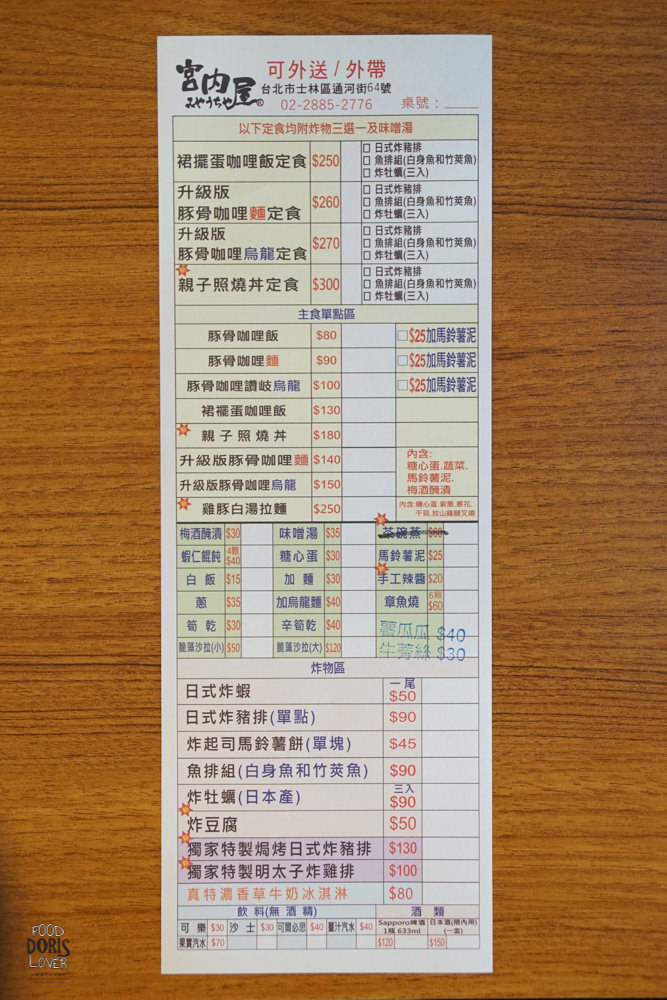 宮內屋
みやうちや
可外送 / 外帶
台北市士林區通河街64號
02-2885-2776 桌號：
以下定食均附炸物三選一及味噌湯
裙擺蛋咖哩飯定食 $250 □ 日式炸豬排
□ 魚排組(白身魚和竹莢魚)
□ 炸牡蠣(三入)
升級版
豚骨咖哩麵定食 $260 □ 日式炸豬排
□ 魚排組(白身魚和竹莢魚)
□ 炸牡蠣(三入)
升級版
豚骨咖哩烏龍定食 $270 □ 日式炸豬排
□ 魚排組(白身魚和竹莢魚)
□ 炸牡蠣(三入)
親子照燒丼定食 $300 □ 日式炸豬排
□ 魚排組(白身魚和竹莢魚)
□ 炸牡蠣(三入)
主食單點區
豚骨咖哩飯 $80 □$25加馬鈴薯泥
豚骨咖哩麵 $90 □$25加馬鈴薯泥
豚骨咖哩讚岐烏龍 $100 □$25加馬鈴薯泥
裙襬蛋咖哩飯 $130
親子照燒丼 $180
升級版豚骨咖哩麵 $140
升級版豚骨咖哩烏龍 $150
內含:
糖心蛋.蔬菜.
馬鈴薯泥.
梅酒醃漬
雞豚白湯拉麵 $250
內含:糖心蛋.紫蔥.蔥花.
干貝.放山雞腿叉燒
梅酒醃漬 $30 味噌湯 $35 茶碗蒸 $60
蝦仁餛飩 4顆 $40 糖心蛋 $30 馬鈴薯泥 $25
白飯 $15 加麵 $30 手工辣醬 $20
蔥 $35 加烏龍麵 $40 章魚燒 6顆 $60
筍乾 $30 辛筍乾 $40 薯瓜瓜 $40
脆藻沙拉(小) $50 脆藻沙拉(大) $120 牛蒡絲 $30
炸物區
日式炸蝦 一尾 $50
日式炸豬排(單點) $90
炸起司馬鈴薯餅(單塊) $45
魚排組(白身魚和竹莢魚) $90
炸牡蠣(日本產) 三入 $90
炸豆腐 $50
獨家特製焗烤日式炸豬排 $130
獨家特製明太子炸雞排 $100
真特濃香草牛奶冰淇淋 $80
飲料(無酒精) 酒類
可樂 $30 沙士 $30 可爾必思 $40 薑汁汽水 $40 Sapporo啤酒 1瓶 633ml 日本酒(限內用) (一盅)
果實汽水 $70 $120 $150
FOOD
DORIS
LOVER